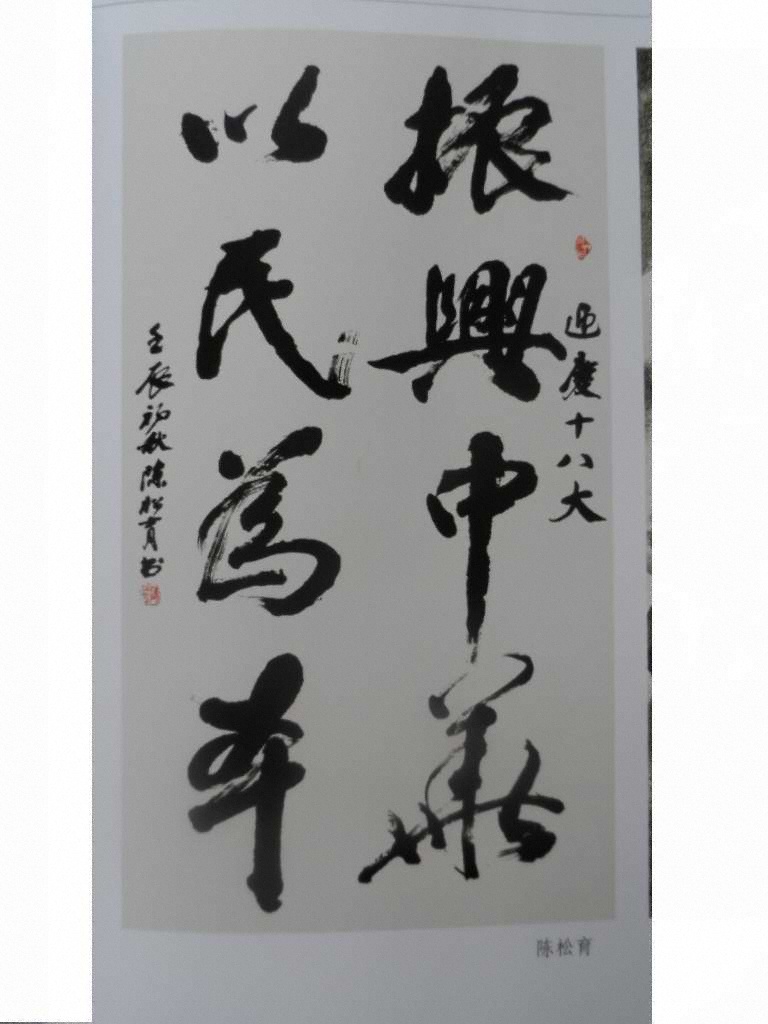 迎慶十八大
振興中華
以民為本
壬辰初秋陳松育書
陈松育